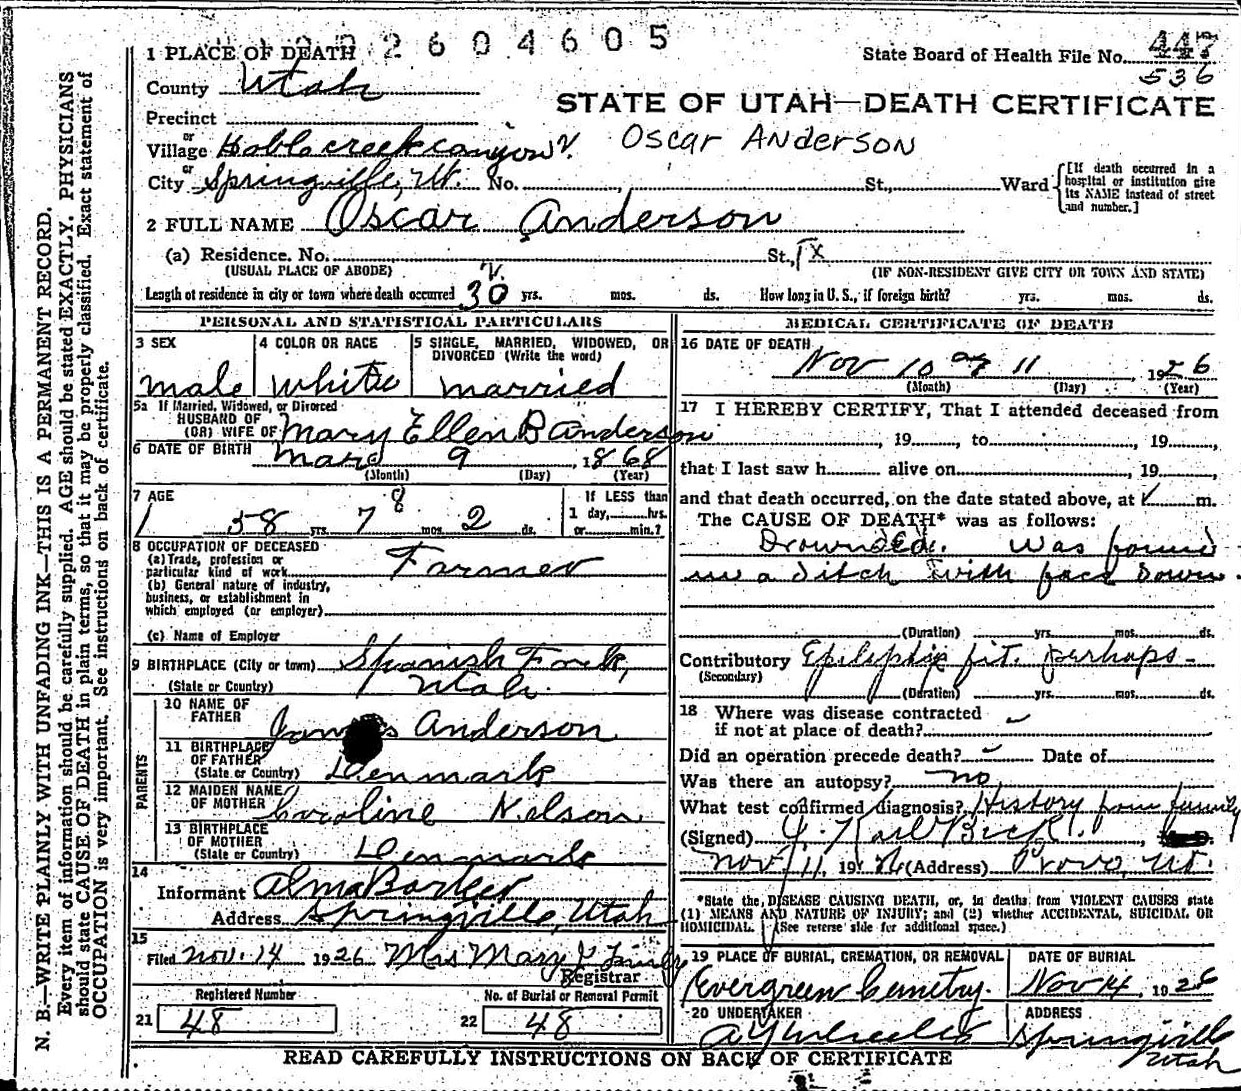 2604605
1 PLACE OF DEATH
State Board of Health File No. 447
536
County Utah
STATE OF UTAH—DEATH CERTIFICATE
Precinct
or
Village Hobblecreek canyon
Oscar Anderson
or
City Springville, Ut. No. St., Ward
[If death occurred in a hospital or institution give its NAME instead of street and number.]
2 FULL NAME Oscar Anderson
(a) Residence. No. St.,
(USUAL PLACE OF ABODE) (IF NON-RESIDENT GIVE CITY OR TOWN AND STATE)
Length of residence in city or town where death occurred 30 yrs. mos. ds. How long in U. S., if foreign birth? yrs. mos. ds.
PERSONAL AND STATISTICAL PARTICULARS
3 SEX
male
4 COLOR OR RACE
white
5 SINGLE, MARRIED, WIDOWED, OR DIVORCED (Write the word)
married
5a If Married, Widowed, or Divorced
HUSBAND OF
(OR) WIFE OF Mary Ellen B Anderson
6 DATE OF BIRTH Marc 9, 1868
(Month) (Day) (Year)
7 AGE
58 yrs. 7 8 mos. 2 ds.
If LESS than
1 day, hrs.
or min.?
8 OCCUPATION OF DECEASED
(a) Trade, profession or
particular kind of work Farmer
(b) General nature of industry,
business, or establishment in
which employed (or employer)
(c) Name of Employer
9 BIRTHPLACE (City or town) Spanish Fork,
(State or Country) Utah.
PARENTS
10 NAME OF
FATHER James Anderson
11 BIRTHPLACE
OF FATHER
(State or Country) Denmark
12 MAIDEN NAME
OF MOTHER Caroline Nelson
13 BIRTHPLACE
OF MOTHER
(State or Country) Denmark
14
Informant Alma Barker
Address Springville, Utah
15
Filed Nov. 14 1926 Mrs Mary J
Registrar
Registered Number
21 48
No. of Burial or Removal Permit
22 48
MEDICAL CERTIFICATE OF DEATH
16 DATE OF DEATH
Nov 10 or 11, 1926
(Month) (Day) (Year)
17 I HEREBY CERTIFY, That I attended deceased from
, 19, to, 19,
that I last saw h alive on, 19
and that death occurred, on the date stated above, at m.
The CAUSE OF DEATH* was as follows:
Drownded. Was found
in a ditch with face down.
(Duration) yrs. mos. ds.
Contributory Epileptic fit. perhaps-
(Secondary)
(Duration) yrs. mos. ds.
18 Where was disease contracted
if not at place of death?
Did an operation precede death? Date of
Was there an autopsy? no
What test confirmed diagnosis? History from family
(Signed) J. Karl Beck.,
Nov 11, 1926 (Address) Provo, Ut.
*State the DISEASE CAUSING DEATH, or, in deaths from VIOLENT CAUSES state
(1) MEANS AND NATURE OF INJURY; and (2) whether ACCIDENTAL, SUICIDAL OR
HOMICIDAL. (See reverse side for additional space.)
19 PLACE OF BURIAL, CREMATION, OR REMOVAL
Evergreen Cemetry.
DATE OF BURIAL
Nov 14, 1926
20 UNDERTAKER
ADDRESS
Springville
Utah
READ CAREFULLY INSTRUCTIONS ON BACK OF CERTIFICATE
N. B.—WRITE PLAINLY WITH UNFADING INK—THIS IS A PERMANENT RECORD.
Every item of information should be carefully supplied. AGE should be stated EXACTLY. PHYSICIANS
should state CAUSE OF DEATH in plain terms, so that it may be properly classified. Exact statement of
OCCUPATION is very important. See instructions on back of certificate.